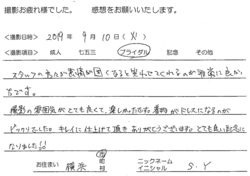 撮影お疲れ様でした。 感想をお願いいたします。
<撮影日時> 2019年 9月10日(火)
<撮影内容> 成人 七五三 ブライダル 記念 その他
スタッフの方が表情が固くなると笑わせてくれるのが非常に良か
ったです。
撮影の雰囲気がとても良くて、楽しかったです。着物がドレスになるのが
ビックリでした。キレイに仕上げて頂きありがとうございます。とても良い記念に
なりました!!
お住まい 横浜 市 ニックネーム イニシャル S.Y